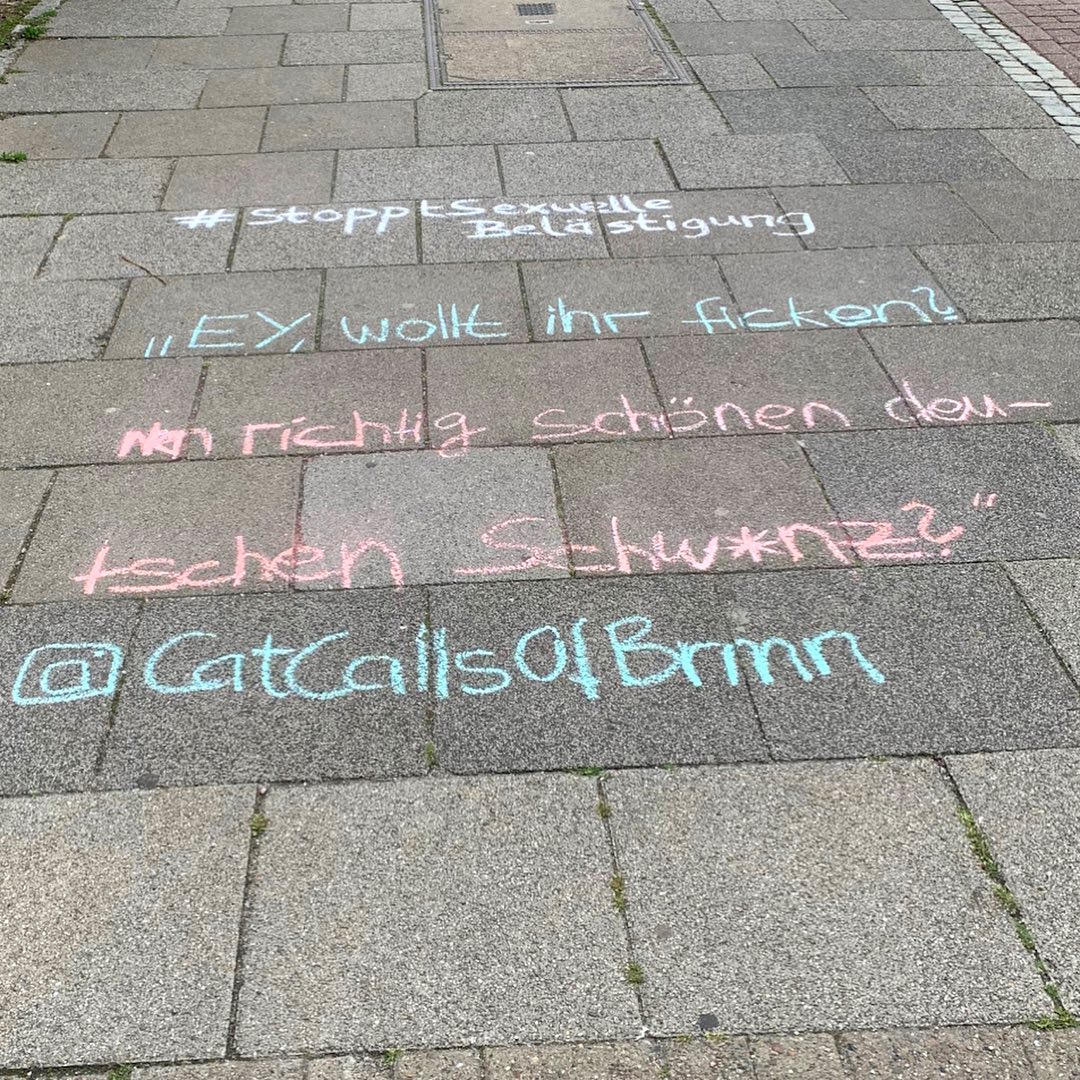 #StopptSexuelle
Belästigung
„EY, wollt ihr ficken?
richtig schönen deu-
tschen Schw*nz?"
@CatCallsOfBrmn